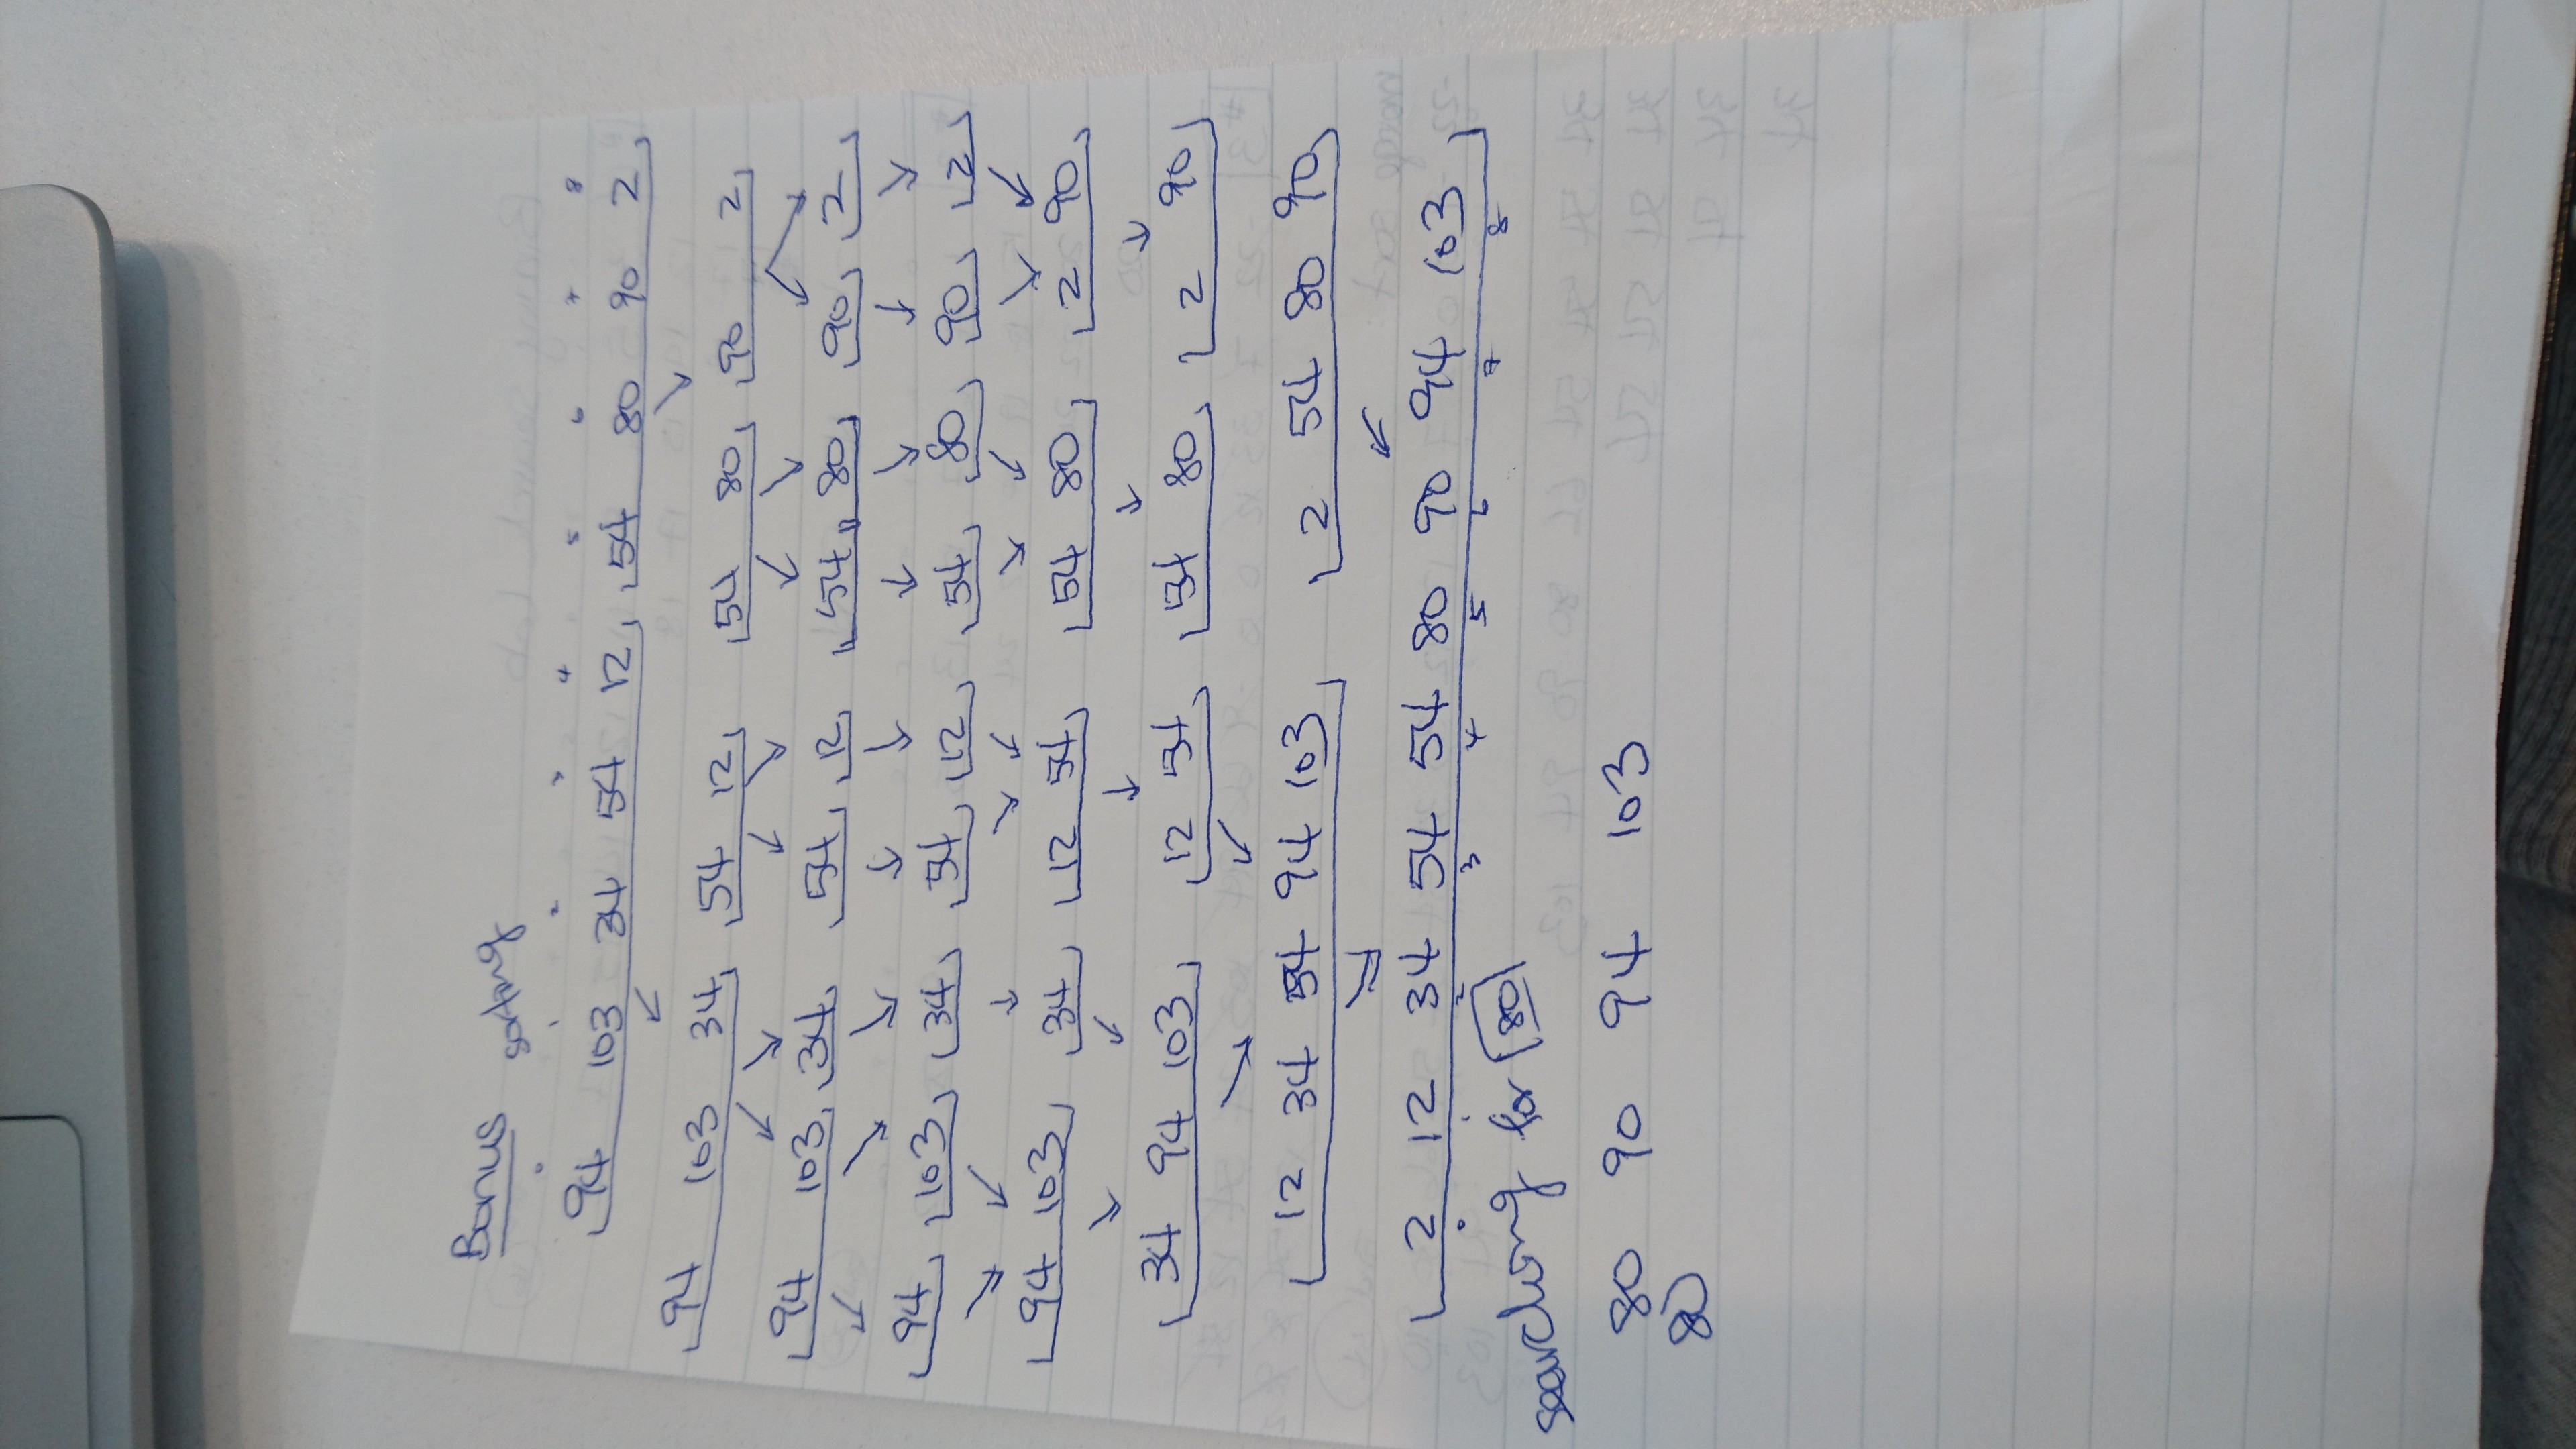 Bonus sorting
0 1 2 3 4 5 6 7 8
94 103 34 54 12 54 80 90 2
94 103 34 54 12 54 80 90 2
94 103 34 54 12 54 80 90 2
94 103 34 54 12 54 80 90 2
94 103 34 12 54 54 80 2 90
34 94 103 12 54 54 80 2 90
12 34 54 94 103 2 54 80 90
2 12 34 54 54 80 90 94 103
0 1 2 3 4 5 6 7 8
searching for 80
80 90 94 103
80